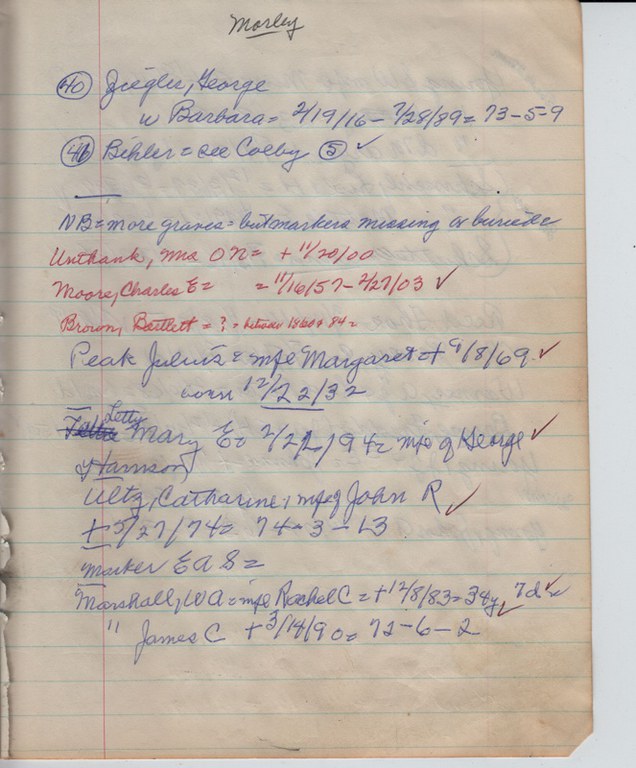 Morley
40 Ziegler, George
w Barbara = 2/19/16 - 7/28/89 = 73-5-9
46 Bihler = see Colby 5 ✓
NB = more graves = but markers missing or buried
Unthank, Mrs O N = + 11/20/00
Moore, Charles E = = 11/16/57 - 2/27/03 ✓
Brown, Bartlett = ? = between 1860 & 84 =
Peak Julius = mfe Margaret = + 9/8/69 ✓
born 12/22/32
Letty Mary E = 2/22/94 = mfe of George ✓
Harrison
Ultz, Catharine, mfe of John R ✓
+ 5/27/74 = 74-3-13
marker E A S =
Marshall, W A = mfe Rachel C = + 12/8/83 = 34y, 7d ✓
" James C + 3/14/90 = 72-6-2 ✓